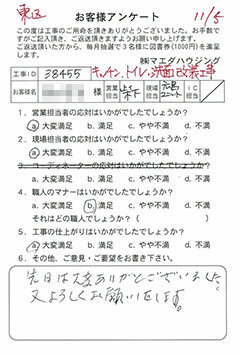 東区
お客様アンケート 11/5
この度は工事のご用命を頂きありがとうございました。お手数
ですがご記入頂き、ご返送頂きますようお願い申し上げます。
ご返送頂いた方から、毎月抽選で3名様に図書券(1000円)を進呈
します。
㈱マエダハウジング
工事ID 38455 キッチン、トイレ、洗面改装工事
お客様名 様 営業担当 現場担当 IC担当
1. 営業担当者の応対はいかがでしたでしょうか?
a. 大変満足 b. 満足 c. やや不満 d. 不満
2. 現場担当者の応対はいかがでしたでしょうか?
a. 大変満足 b. 満足 c. やや不満 d. 不満
3. コーディネーターの応対はいかがでしたでしょうか?
a. 大変満足 b. 満足 c. やや不満 d. 不満
4. 職人のマナーはいかがでしたでしょうか?
a. 大変満足 b. 満足 c. やや不満 d. 不満
それはどの職人でしょうか?( )
5. 工事の仕上がりはいかがでしたでしょうか?
a. 大変満足 b. 満足 c. やや不満 d. 不満
6. その他、ご意見・ご要望をお書き下さい。
先日は大変ありがとうございました。
又よろしくお願いします。